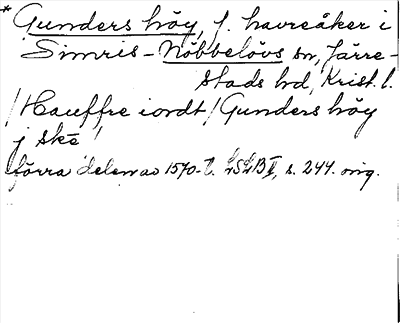 * Gunders höy, f. havreåker i
Simris-Nöbbelövs sn, Järre-
stads hd, Krist. l.
/Hauffre iordt/ Gunders höy
j skē
förra delen av 1570-t. LSLB II, s. 244. orig.